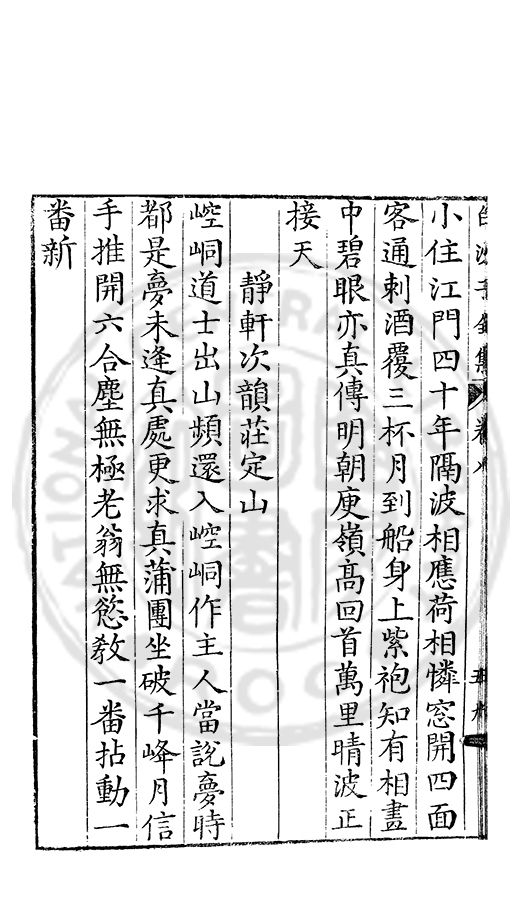 小住江門四十年隔波相應荷相憐窓開四面
客通刺酒覆三杯月到船身上紫袍知有相晝
中碧眼亦真傳明朝庾嶺高回首萬里晴波正
接天
靜軒次韻莊定山
崆峒道士出山頻還入崆峒作主人當說夢時
都是夢未逢真處更求真蒲團坐破千峰月信
手推開六合塵無極老翁無慾教一番拈動一
番新